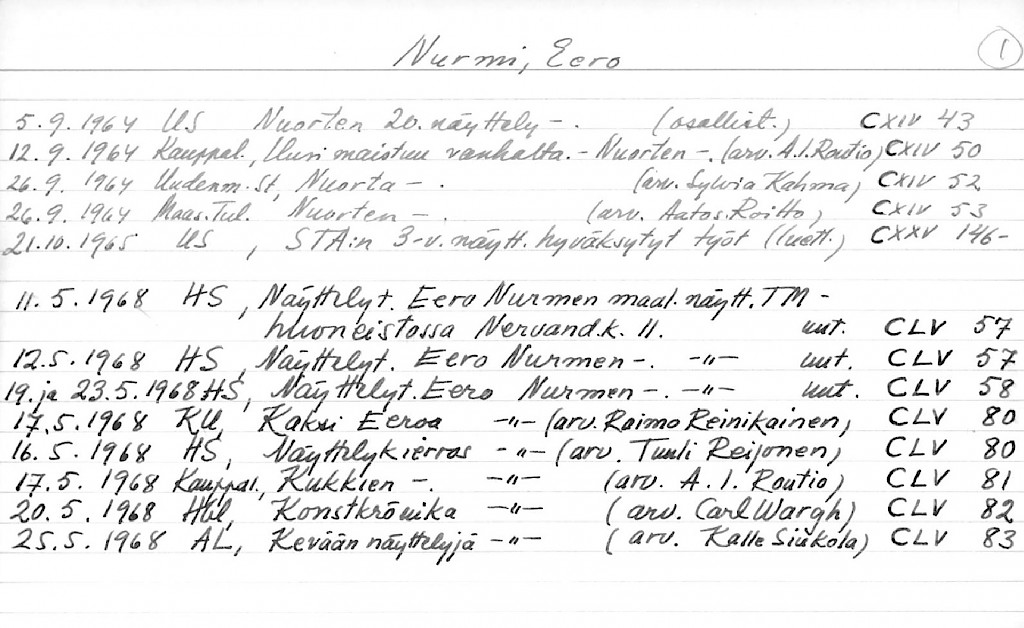 Nurmi, Eero
1
5.9.1964 US Nuorten 20. näyttely -. (osallist.) CXIV 43
12.9.1964 Kauppal., Uusi maistuu vanhalta. - Nuorten -. (arv. A.I. Routio) CXIV 50
26.9.1964 Uudenm. St, Nuorta -. (arv. Sylvia Kahma) CXIV 52
26.9.1964 Maas. Tul. Nuorten -. (arv. Aatos Roitto) CXIV 53
21.10.1965 US, STA:n 3-v. näytt. hyväksytyt työt (luett.) CXXV 146-
11.5.1968 HS, Näyttelyt. Eero Nurmen maal. näytt. TM-
huoneistossa Nervand.k. 11. uut. CLV 57
12.5.1968 HS, Näyttelyt. Eero Nurmen -. -"- uut. CLV 57
19. ja 23.5.1968 HS, Näyttelyt. Eero Nurmen -. -"- uut. CLV 58
17.5.1968 KU, Kaksi Eeroa -"- (arv. Raimo Reinikainen) CLV 80
16.5.1968 HS, Näyttelykierros -"- (arv. Tuuli Reijonen) CLV 80
17.5.1968 Kauppal., Kukkien -. -"- (arv. A.I. Routio) CLV 81
20.5.1968 Hbl, Konstkrönika -"- (arv. Carl Wargh) CLV 82
25.5.1968 AL, Kevään näyttelyjä -"- (arv. Kalle CLV 83